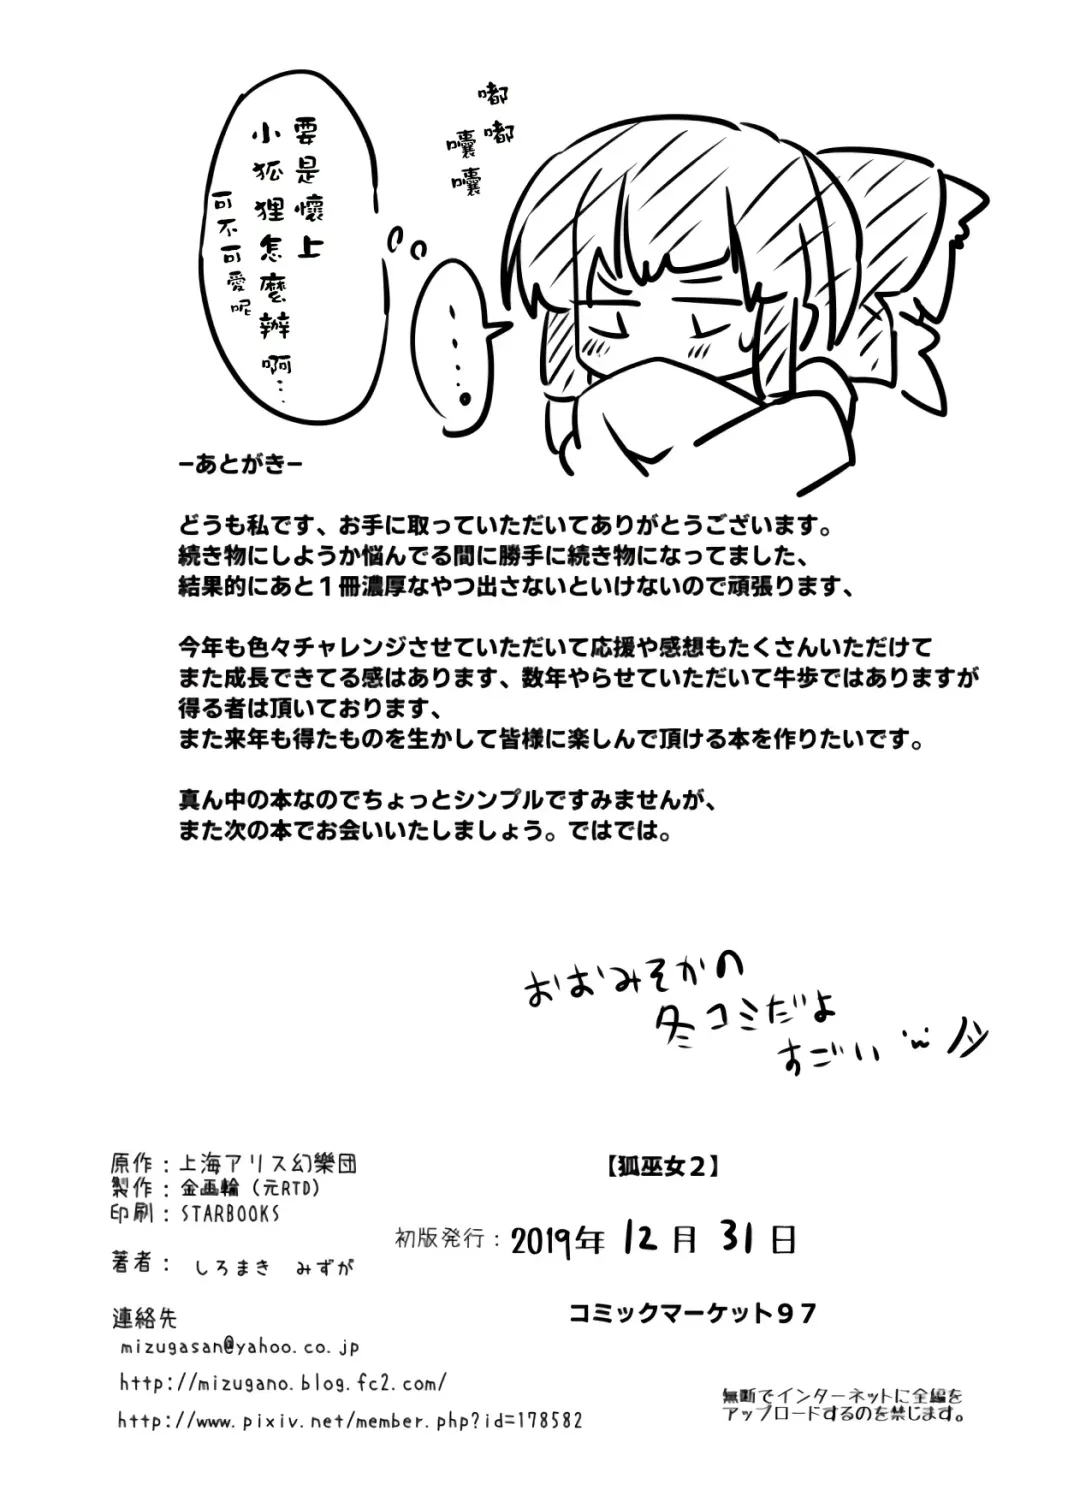 嘟
嘟
囔
囔
要是懷上
小狐狸怎麼辦啊…
可不可愛呢
・・・・・・。
ーあとがきー
どうも私です、お手に取っていただいてありがとうございます。
続き物にしようか悩んでる間に勝手に続き物になってました、
結果的にあと１冊濃厚なやつ出さないといけないので頑張ります、
今年も色々チャレンジさせていただいて応援や感想もたくさんいただけて
また成長できてる感はあります、数年やらせていただいて牛歩ではありますが
得る者は頂いております、
また来年も得たものを生かして皆様に楽しんで頂ける本を作りたいです。
真ん中の本なのでちょっとシンプルですみませんが、
また次の本でお会いいたしましょう。ではでは。
おおみそかの
冬コミだよ
すごい
原作：上海アリス幻樂団
製作：金画輪（元RTD）
印刷：STARBOOKS
著者： しろまき みずが
連絡先
mizugasan@yahoo.co.jp
http://mizugano.blog.fc2.com/
http://www.pixiv.net/member.php?id=178582
【狐巫女２】
初版発行：2019年 12月 31日
コミックマーケット９７
無断でインターネットに全編を
アップロードするのを禁じます。